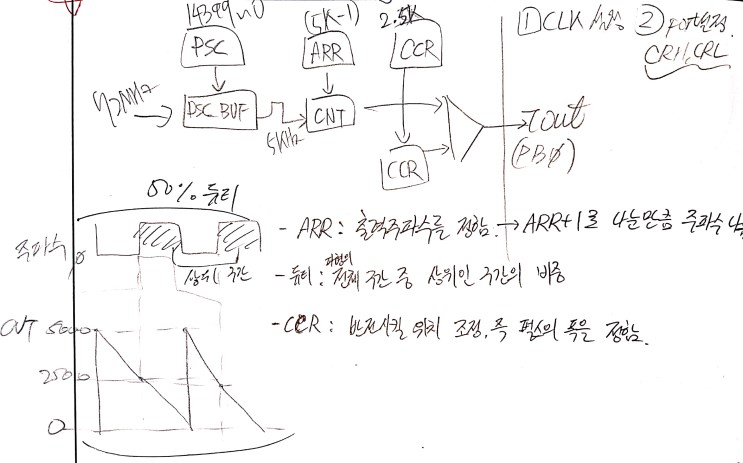 14399
(5K-1)
2.5K
① CLK 설정 ② port설정.
CRH, CRL
PSC
ARR
CCR
72MHz
PSC BUF
5KHz
CNT
CCR
Tout
(PB0)
50% 듀티
주파수
상위 구간
- ARR : 출력주파수를 정함. → ARR+1로 나눈만큼 주파수
- 듀티 : 파형의 전체 구간 중 상위인 구간의 비중
- CCR : 반전시킬 위치 조정, 즉 펄스의 폭을 정함.
CNT 5000
2500
0